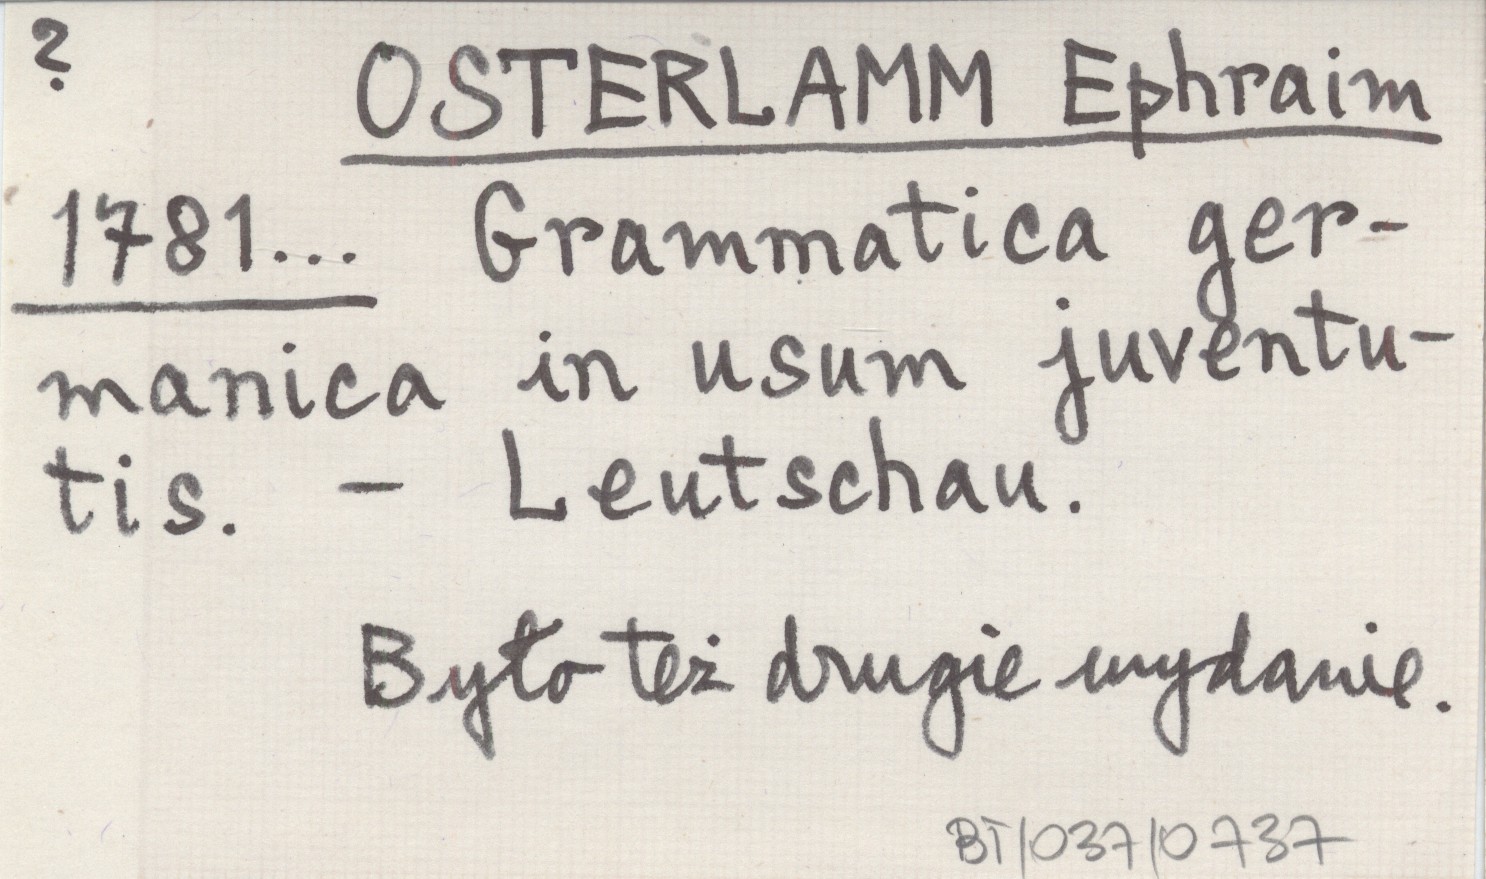 ?
OSTERLAMM Ephraim
1781... Grammatica ger-
manica in usum juventu-
tis. - Leutschau.
Było też drugie wydanie.
BT/037/0737